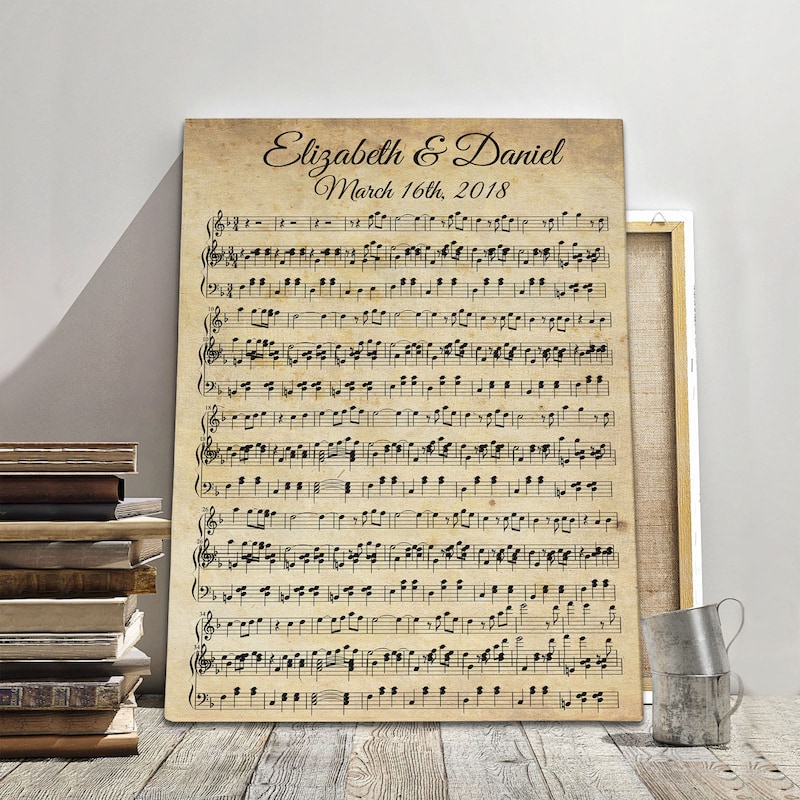 Elizabeth & Daniel
March 16th, 2018
18
26
34